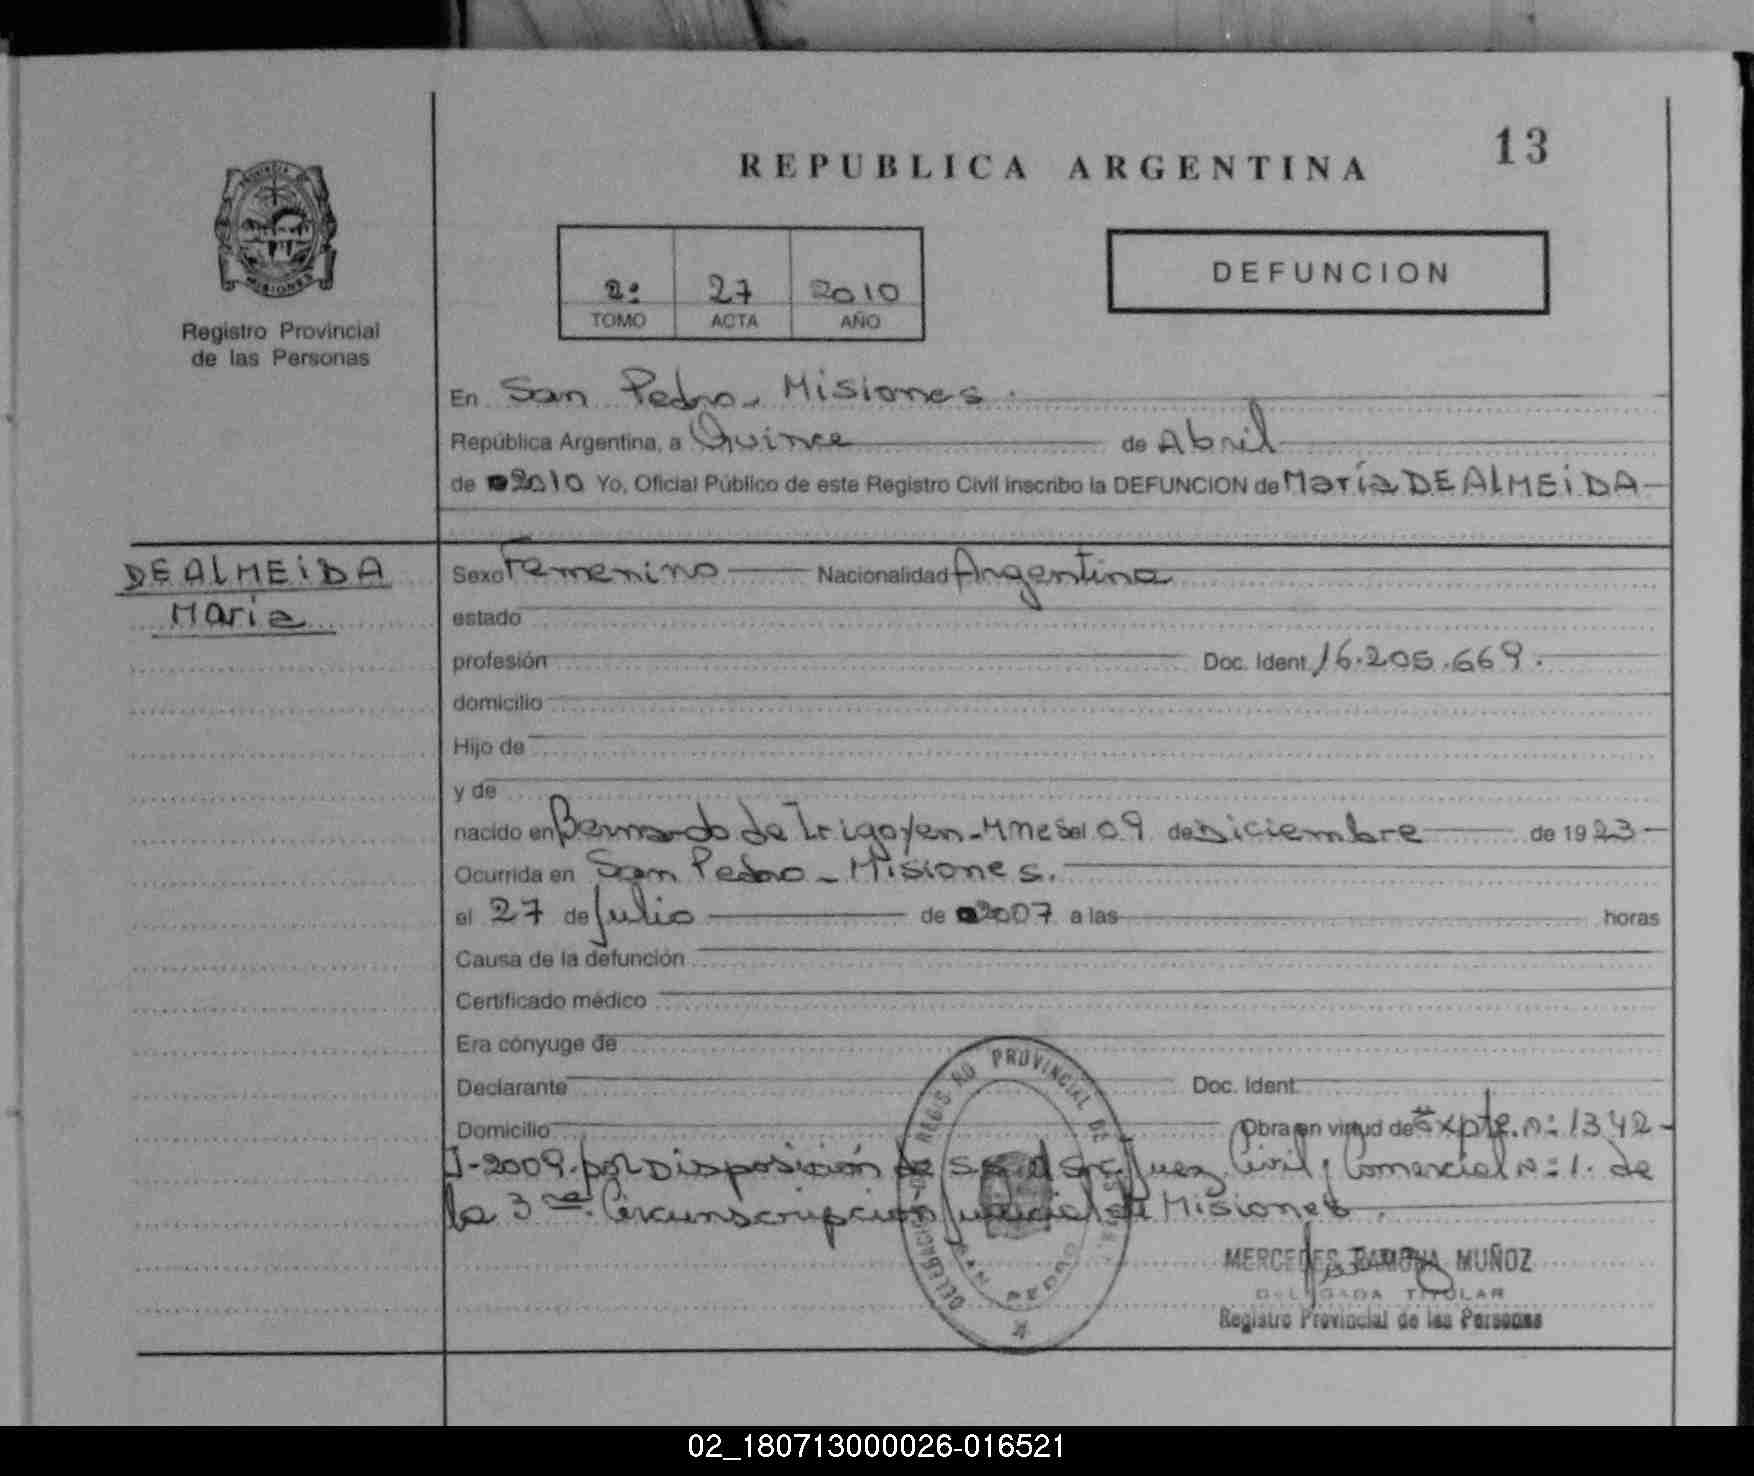 13
REPUBLICA ARGENTINA
MISIONES
Registro Provincial
de las Personas
2º 27 2010
TOMO ACTA AÑO
DEFUNCION
En San Pedro - Misiones.
República Argentina, a Quince de Abril
de 2010 Yo, Oficial Público de este Registro Civil inscribo la DEFUNCION de María DE ALMEIDA
DE ALMEIDA
María
Sexo Femenino Nacionalidad Argentina
estado
profesión Doc. Ident. 16.205.669.
domicilio
Hijo de
y de
nacido en Bernardo de Irigoyen - Mnes el 09 de Diciembre de 1923
Ocurrida en San Pedro - Misiones.
el 27 de Julio de 2007 a las horas
Causa de la defunción
Certificado médico
Era cónyuge de
Declarante Doc. Ident.
Domicilio Obra en virtud de Expte. nº 1342-
J-2009. por Disposición de S.S. el Sr. Juez Civil y Comercial nº 1. de
la 3ra. Circunscripción Judicial de Misiones.
REGISTRO PROVINCIAL DE LAS
DELEGACION
SAN PEDRO
MERCEDES RAMONA MUÑOZ
DELEGADA TITULAR
Registro Provincial de las Personas
02_180713000026-016521